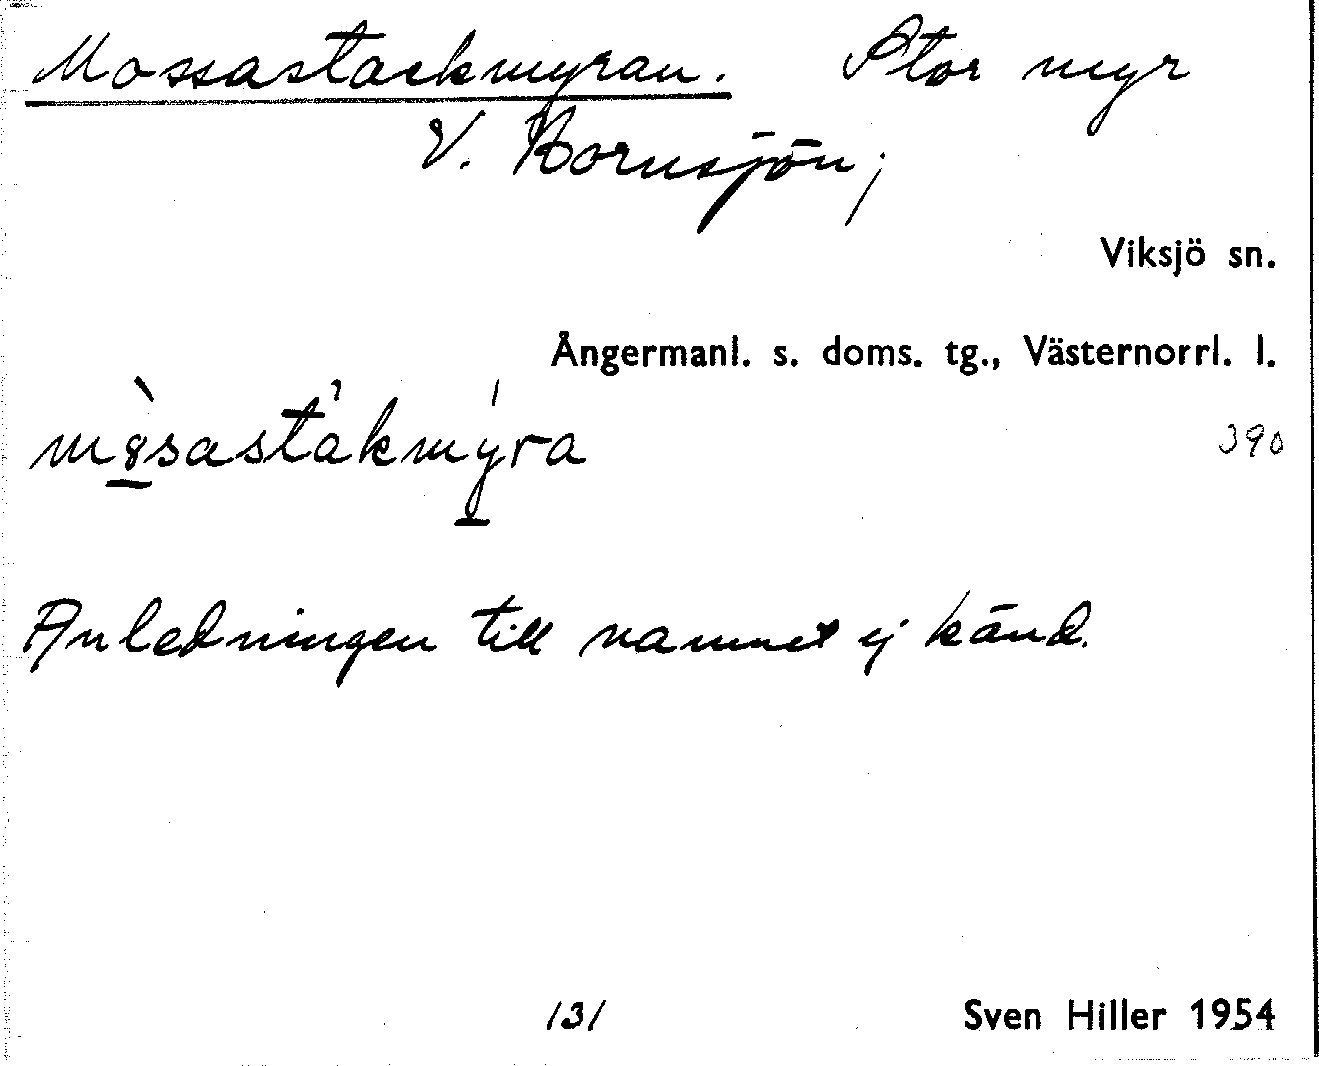 Mossastackmyran. Stor myr
V. Hornsjön;
Viksjö sn.
Ångermanl. s. doms. tg., Västernorrl. l.
390
Anledningen till namnet ej känd.
131
Sven Hiller 1954